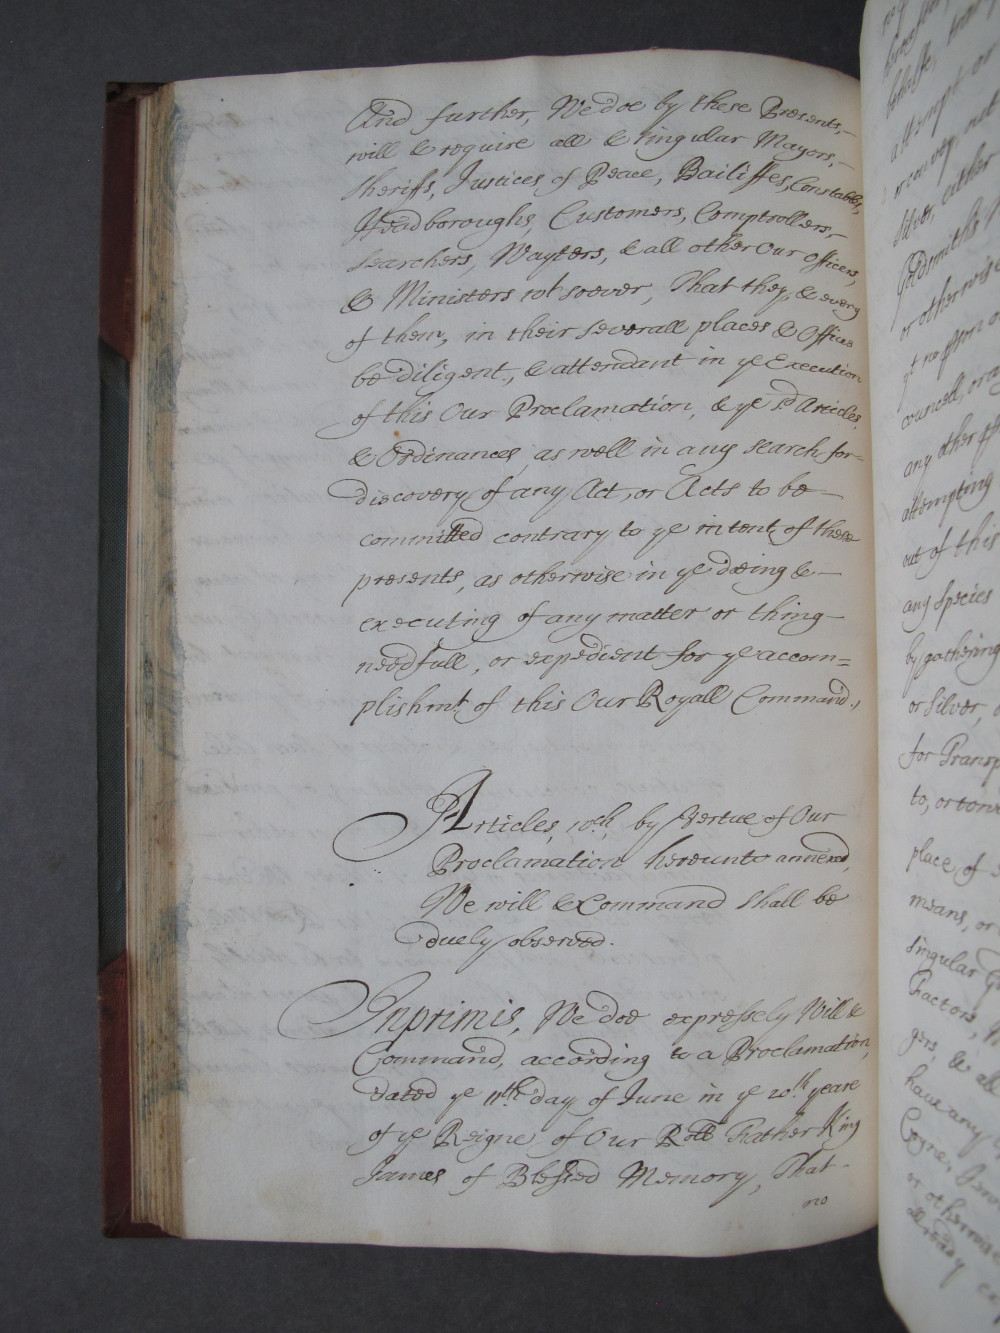 And further, We doe by these Presents,
will & require all & singular Mayors,
Sheriffs, Justices of Peace, Bailiffes, Constables,
Headboroughs, Customers, Comptrollers,
Searchers, Wayters, & all other Our Officers,
& Ministers wt soever, That they, & every
of them, in their severall places & Offices
be diligent, & attendant in ye Execution
of this Our Proclamation, & ye sd Articles,
& Ordinances, as well in any search, for
discovery of any Act, or Acts to be
committed contrary to ye intent of these
presents, as otherwise in ye doeing &
executing of any matter or thing
needfull, or expedient for ye accom=
plishmt of this Our Royall Command.
Articles, wch, by Vertue of Our
Proclamation hereunto annexed,
We will & Command shall be
duely observed.
Inprimis, We doe expressely Will &
Command, according to a Proclamation,
dated ye 11th day of June in ye 20th yeare
of ye Reigne of Our Royll Father King
James of Blessed Memory, That
no
attempt or
or convey out
silver, either
Goldsmiths
or otherwise
yt no pson
councell, or a
any other
attempting
out of this
any Species
by gathering
or Silver,
for Transp
to, or conv
place of
means, or
singular
Factors,
gers, & all
have any
Coyne,
or otherwise
already